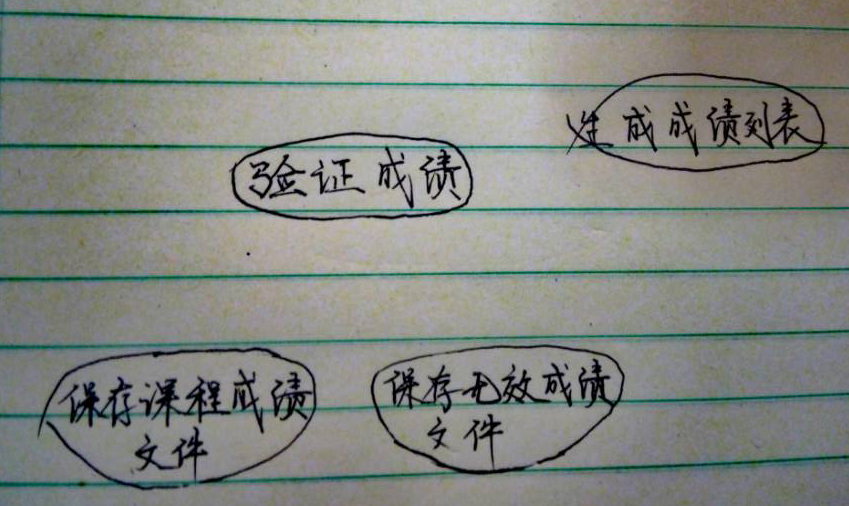 生成成绩列表
验证成绩
保存课程成绩
文件
保存无效成绩
文件